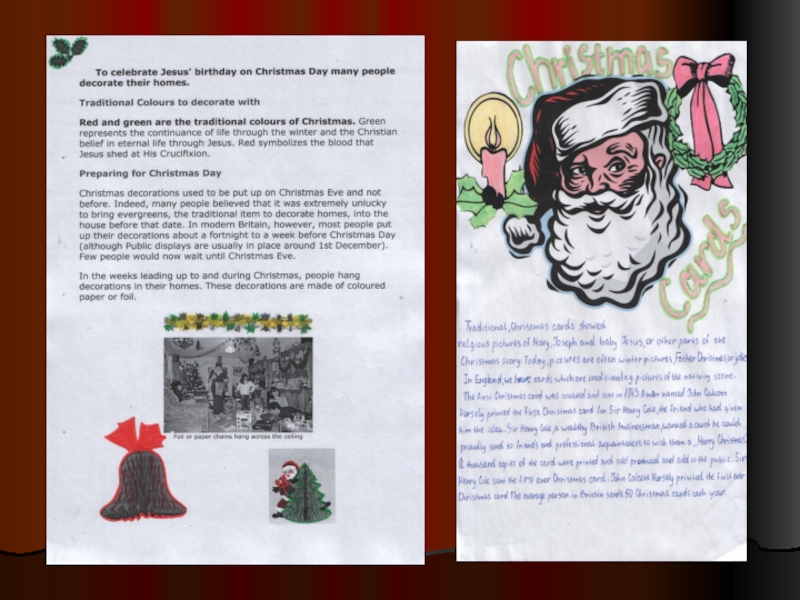 To celebrate Jesus' birthday on Christmas Day many people
decorate their homes.
Traditional Colours to decorate with
Red and green are the traditional colours of Christmas. Green
represents the continuance of life through the winter and the Christian
belief in eternal life through Jesus. Red symbolizes the blood that
Jesus shed at His Crucifixion.
Preparing for Christmas Day
Christmas decorations used to be put up on Christmas Eve and not
before. Indeed, many people believed that it was extremely unlucky
to bring evergreens, the traditional item to decorate homes, into the
house before that date. In modern Britain, however, most people put
up their decorations about a fortnight to a week before Christmas Day
(although Public displays are usually in place around 1st December).
Few people would now wait until Christmas Eve.
In the weeks leading up to and during Christmas, people hang
decorations in their homes. These decorations are made of coloured
paper or foil.
Foil or paper chains hang across the ceiling
Christmas
Cards
Traditional, Christmas cards showed
religious pictures of Mary, Joseph and baby Jesus, or other parts of the
Christmas story. Today, pictures are often winter pictures, Father Christmas, or joke
In England, we have cards which are traditional e.g. pictures of the nativity scene.
The first Christmas card was created and sent in 1843. A man named John Calcott
Horsely printed the first Christmas card for Sir Henry Cole, the friend who had given
him the idea. Sir Henry Cole, a wealthy British businessman, wanted a card he could
proudly send to friends and professional acquaintances to wish them a "Merry Christmas."
A thousand copies of the card were printed and sold produced and sold to the public. Sir
Henry Cole sent the first ever Christmas card. John Calcott Horsely printed the first ever
Christmas card. The average person in Britain sends 50 Christmas cards each year.